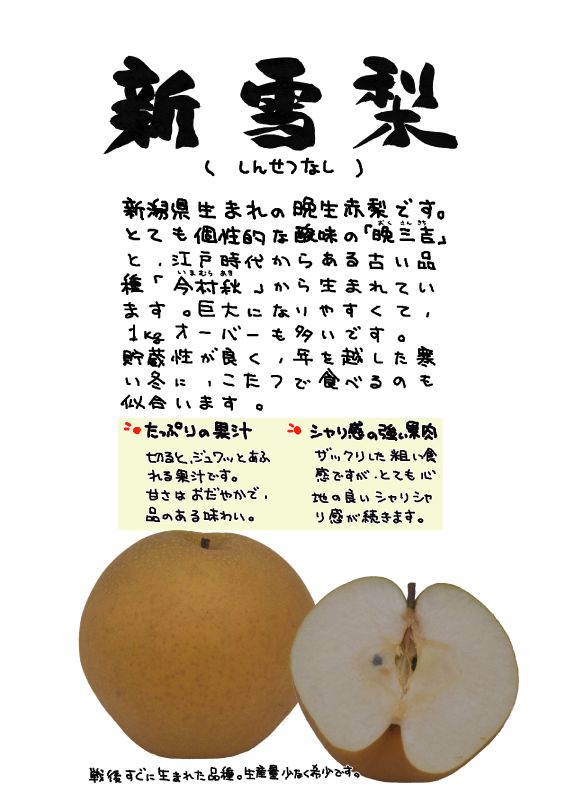 新雪梨
( しんせつなし )
新潟県生まれの晩生赤梨です。
とても個性的な酸味の「晩三吉」
おく さん きち
と、江戸時代からある古い品
いまむら あき
種「今村秋」から生まれてい
ます。巨大になりやすくて、
1kgオーバーも多いです。
貯蔵性が良く、年を越した寒
い冬に、こたつで食べるのも
似合います。
たっぷりの果汁
切ると、ジュワッとあふ
れる果汁です。
甘さはおだやかで、
品のある味わい。
シャリ感の強い果肉
ザックリした粗い食
感ですが、とても心
地の良いシャリシャ
リ感が続きます。
戦後すぐに生まれた品種。生産量少なく希少です。